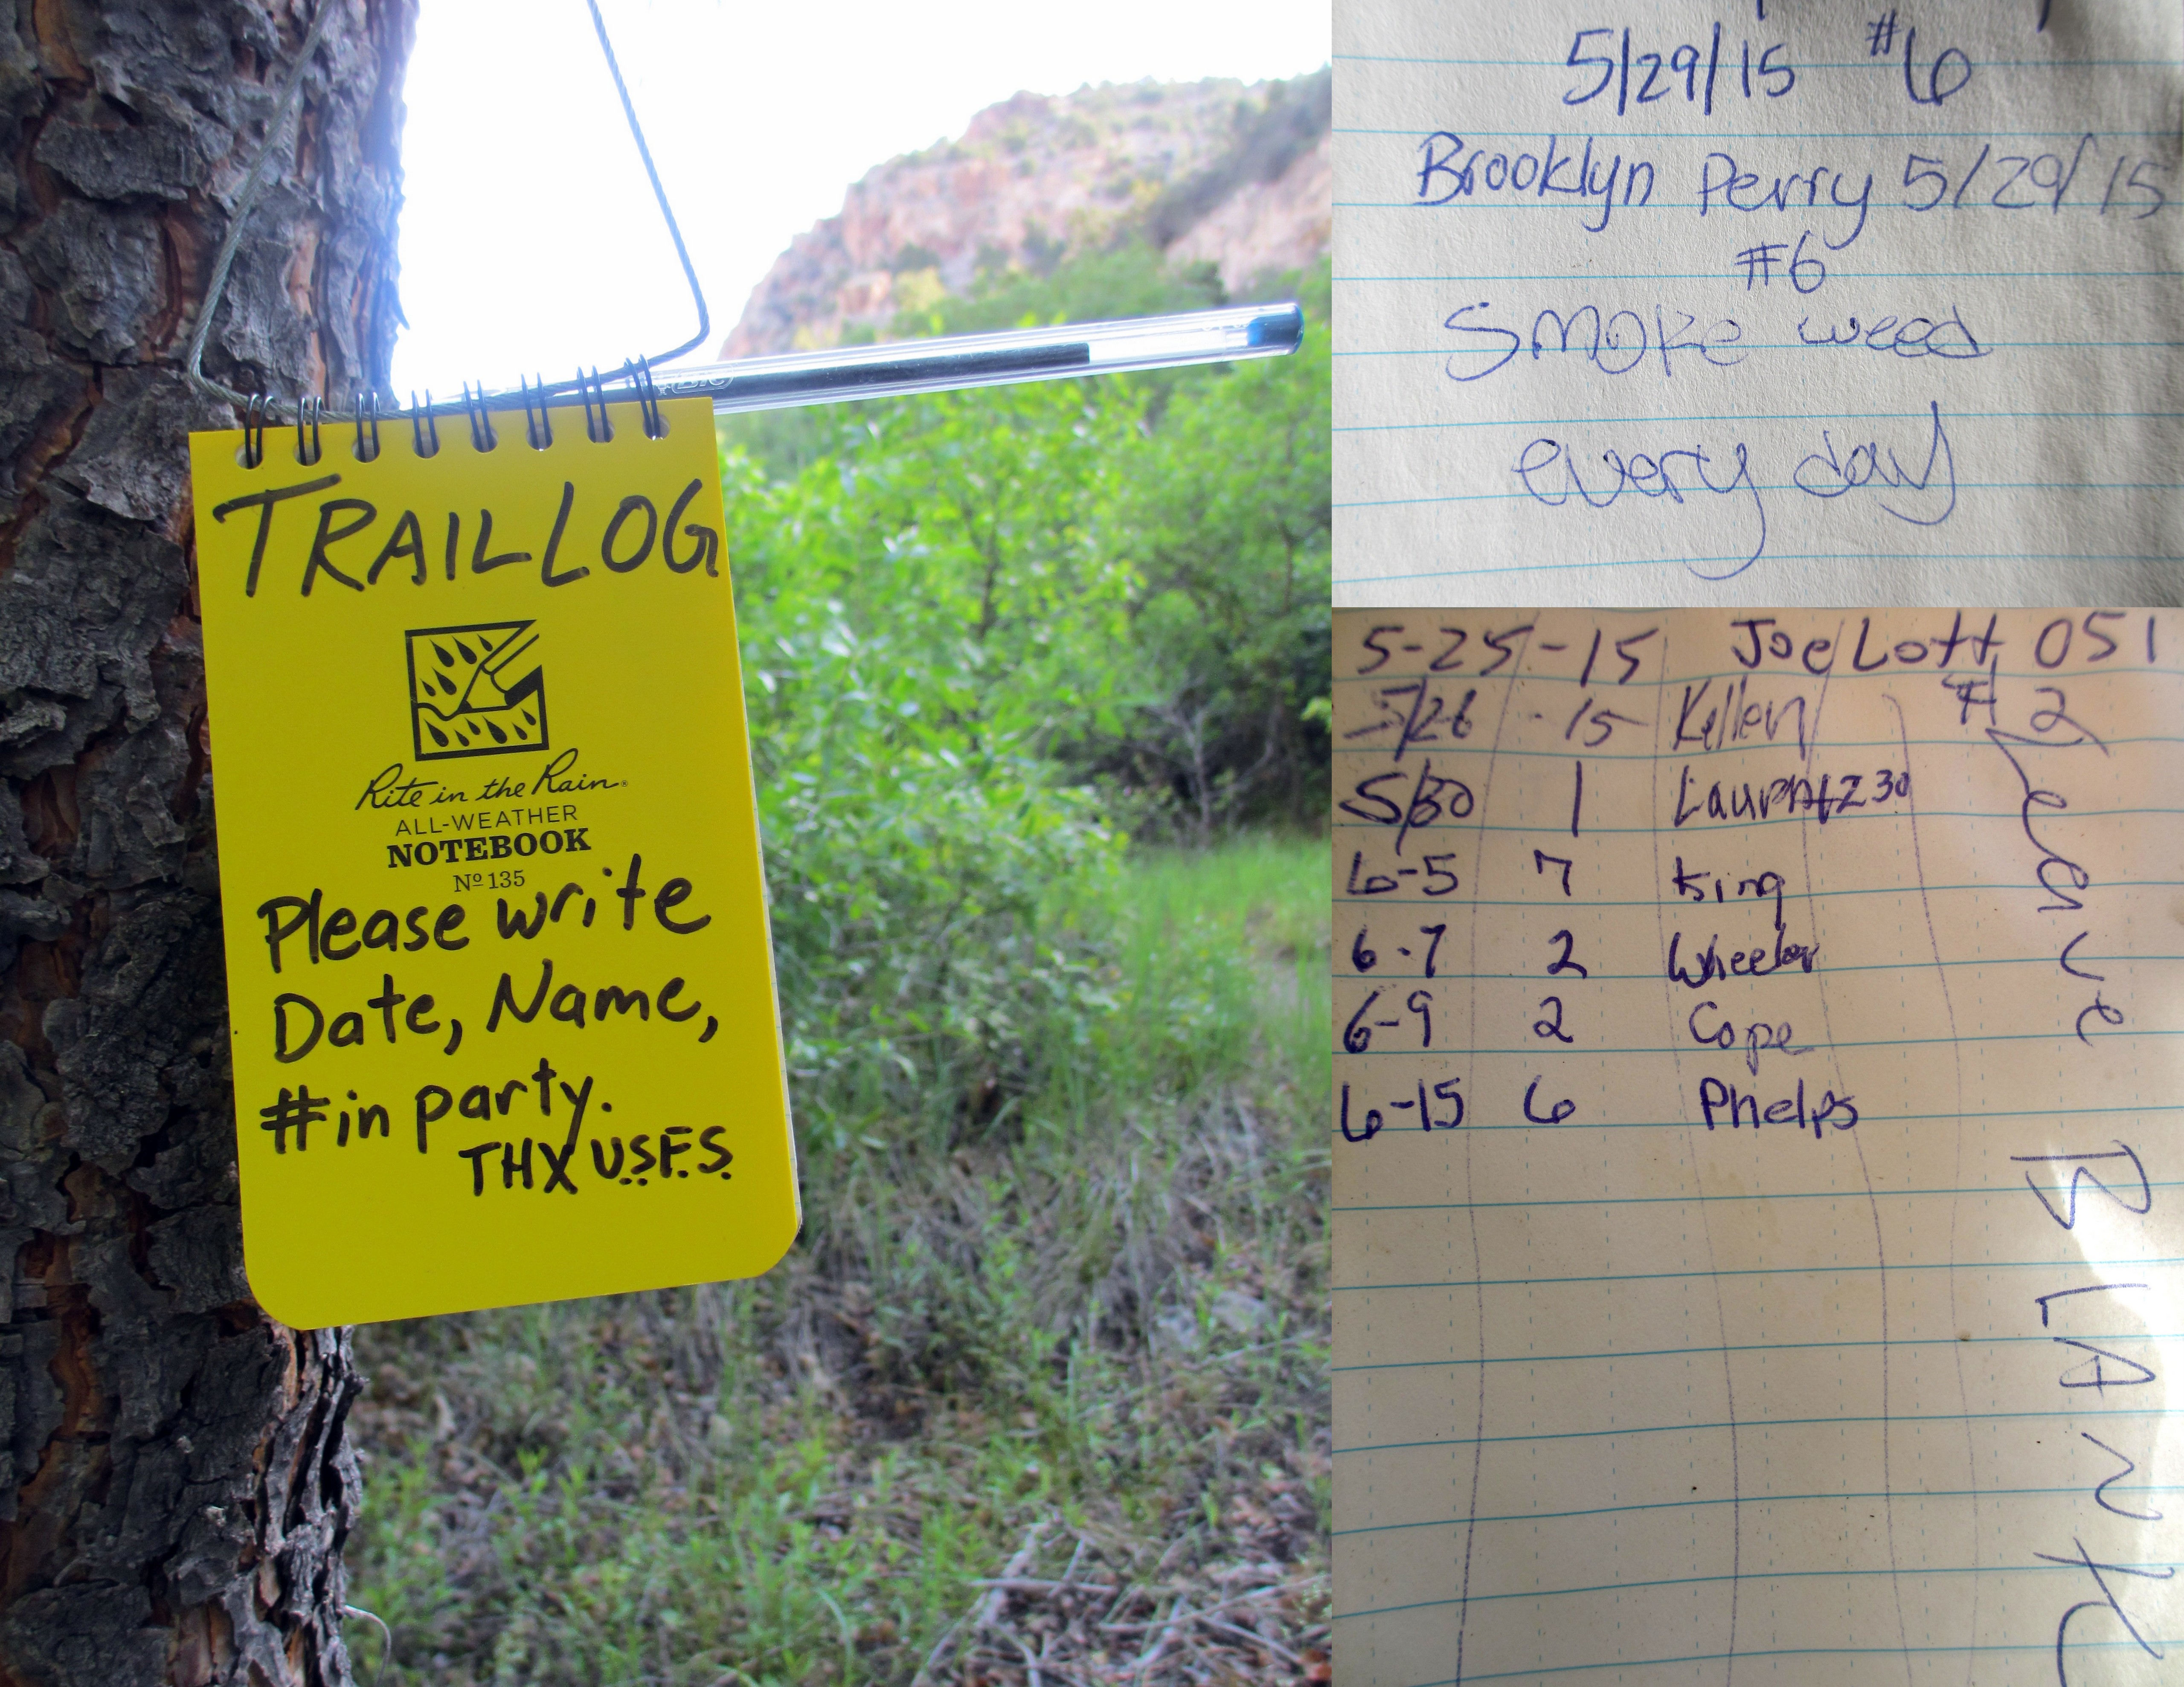 TRAIL LOG
Rite in the Rain®
ALL-WEATHER
NOTEBOOK
Nº 135
Please write
Date, Name,
#in party.
THX U.S.F.S.
5/29/15 #6
Brooklyn Perry 5/29/15
#6
Smoke weed
every day
5-25-15 Joe Lott 051
5/26 -15 Kellen # 2
5/30 1
6-5 7 King
6-7 2 Wheeler
6-9 2 Cope
6-15 6 Phelps
Leave
BLANK